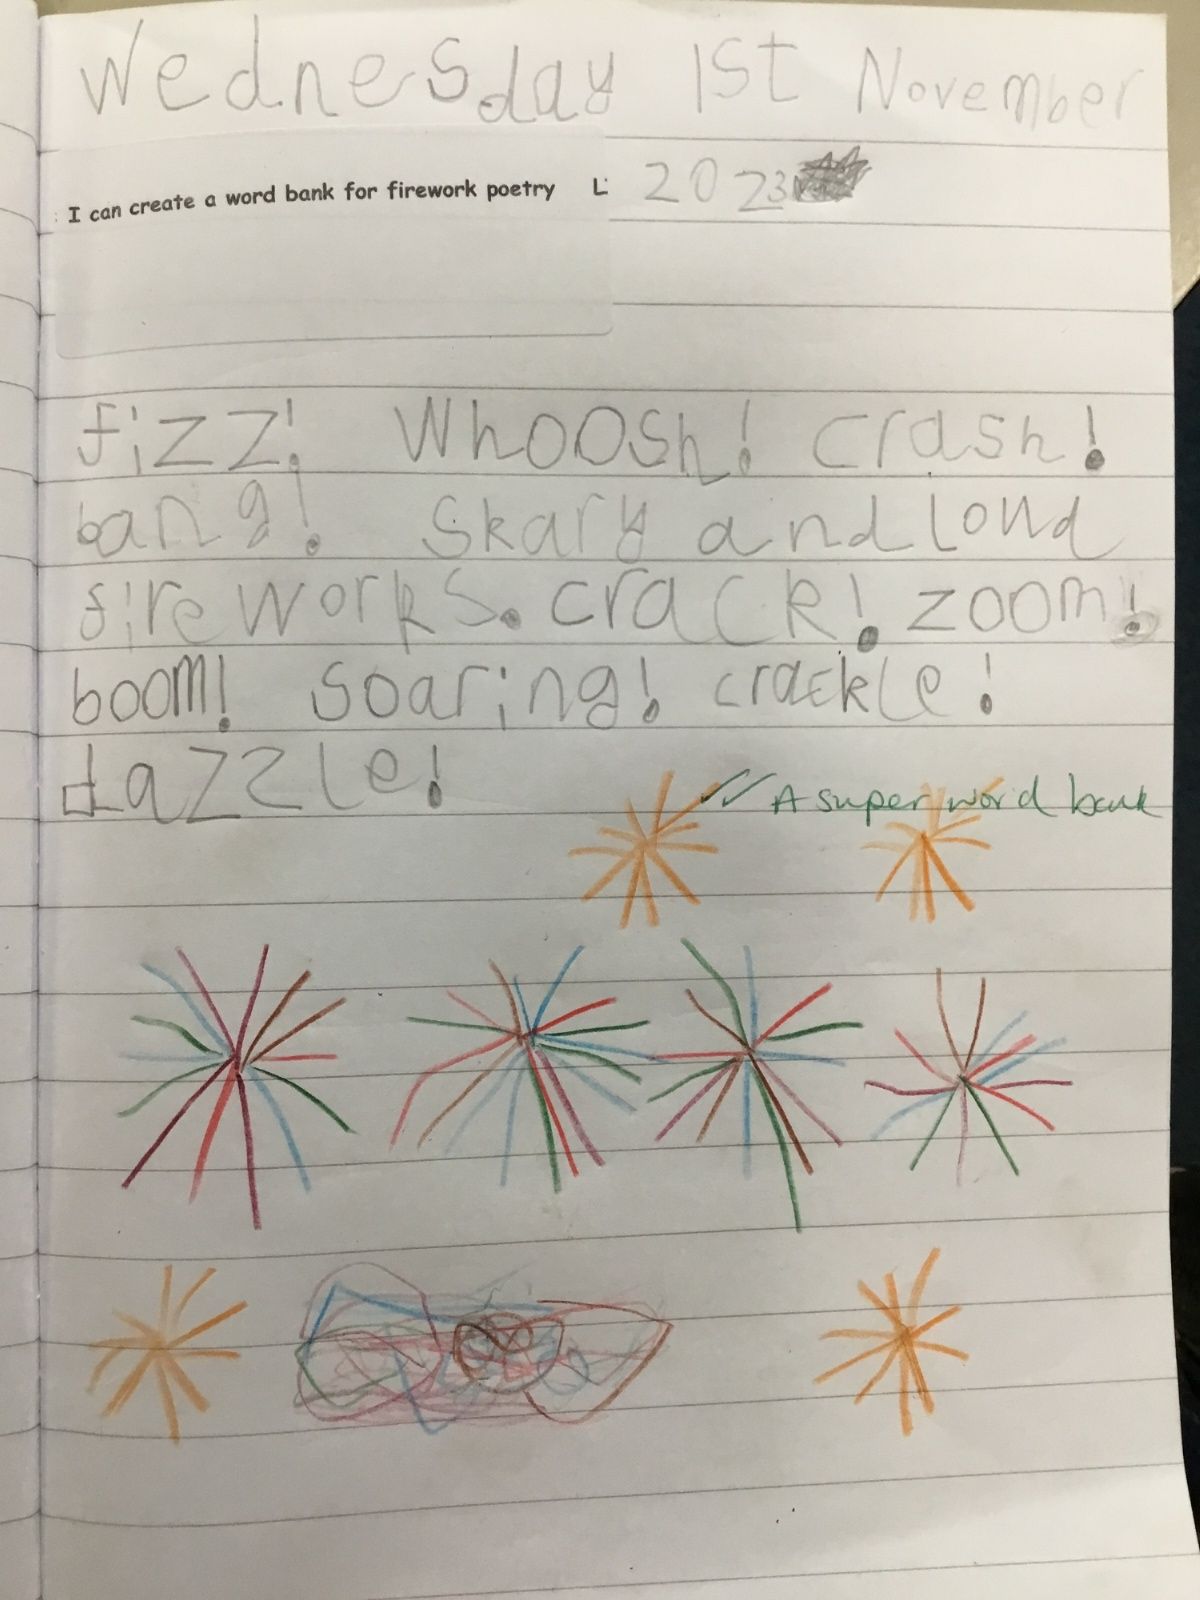 Wednesday 1st November
I can create a word bank for firework poetry L
2023
fizz! Whoosh! crash!
bang! Skary and loud
fireworks. crack! zoom!
boom! soaring! crackle!
dazzle!
A super word bank